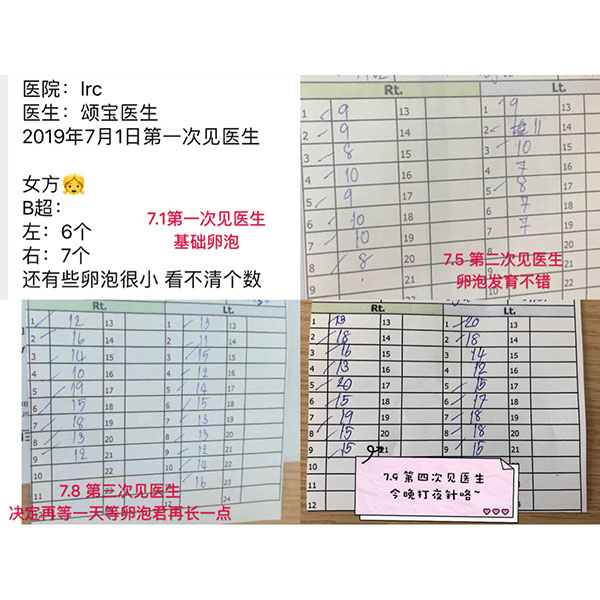 医院：lrc
医生：颂宝医生
2019年7月1日第一次见医生
女方👧
B超：
左：6个
右：7个
还有些卵泡很小 看不清个数
7.1第一次见医生
基础卵泡
Rt. Lt.
1 9 13 1 9 13
2 9 14 2 11 14
3 8 15 3 10 15
4 10 16 4 7 16
5 9 17 5 8 17
6 10 18 6 7 18
7 10 19 7 7
8 8 20
7.5 第二次见医生
卵泡发育不错
Rt. Lt.
1 12 13 1 13 13
2 16 14 2 11 14
3 14 15 3 15 15
4 10 16 4 12 16
5 19 17 5 14 17
6 15 18 6 15 18
7 18 19 7 13 19
8 13 20 8 13 20
9 12 21 9 12 21
10 22 10 14 22
16
24
7.8 第三次见医生
决定再等一天等卵泡君再长一点
Rt. Lt.
1 13 13 1 20 13
2 18 14 2 18 14
3 16 15 3 14 15
4 13 16 4 12 16
5 20 17 5 15 17
6 15 18 6 17 18
7 19 19 7 18 19
8 15 20 8 18 20
9 15 21 9 15 21
10 22
11
12
7.9 第四次见医生
今晚打夜针咯~